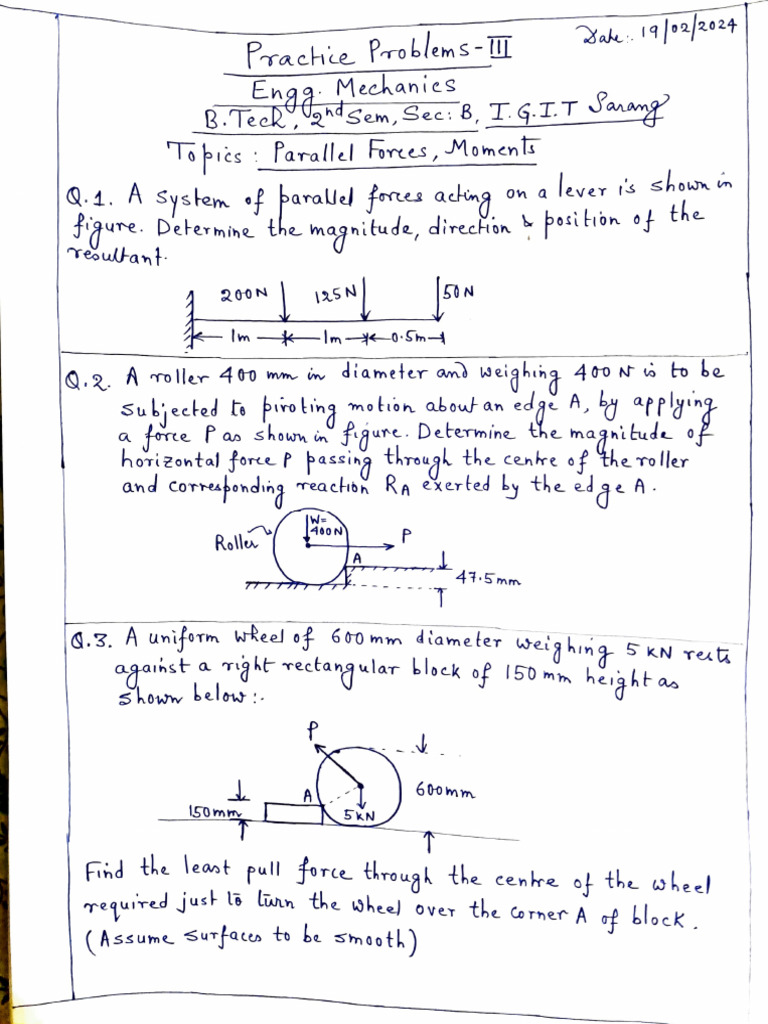 Date:. 19/02/2024
Practice Problems-III
Engg. Mechanics
B.Tech, 2nd Sem, Sec: B, I.G.I.T Sarang
Topics : Parallel Forces, Moments
Q.1. A system of parallel forces acting on a lever is shown in
figure. Determine the magnitude, direction & position of the
resultant.
200N 125N 50N
1m 1m 0.5m
Q.2. A roller 400 mm in diameter and weighing 400 N is to be
subjected to pivoting motion about an edge A, by applying
a force P as shown in figure. Determine the magnitude of
horizontal force P passing through the centre of the roller
and corresponding reaction RA exerted by the edge A.
Roller W= 400N P
A
47.5mm
Q.3. A uniform wheel of 600mm diameter weighing 5 kN rests
against a right rectangular block of 150 mm height as
shown below:.
P
A 600mm
150mm 5kN
Find the least pull force through the centre of the wheel
required just to turn the wheel over the corner A of block.
(Assume surfaces to be smooth)